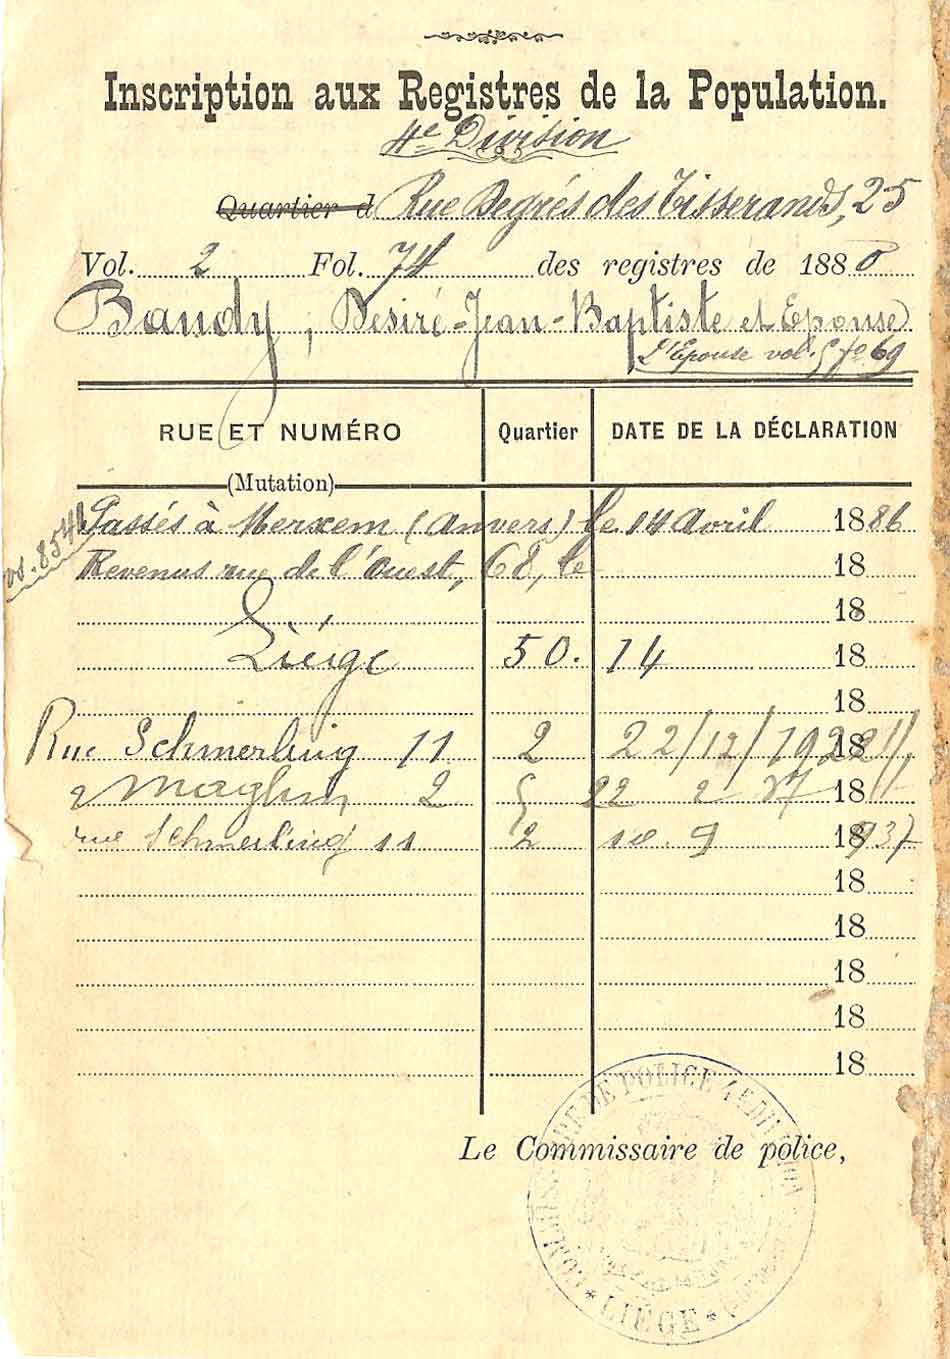 Inscription aux Registres de la Population.
4e Division
Quartier d Rue Degrés des Tisserands, 25
Vol. 2 Fol. 74 des registres de 1880
Baudy, Desiré-Jean-Baptiste et Epouse
L'Epouse vol. 5 fo 69
RUE ET NUMÉRO Quartier DATE DE LA DÉCLARATION
(Mutation)
Passés à Merxem (Anvers) le 14 Avril 1886
8541
Revenus rue de l'Ouest, 68, le 18
18
Liége 50. 14 18
18
Rue Schmerling 11 2 22/12/192 18
Maghin 2 5 22 2 27 18
rue Schmerling 11 2 10. 9 18 937
18
18
18
18
18
Le Commissaire de police,
DE POLICE 4e DIVISION
* LIÉGE *